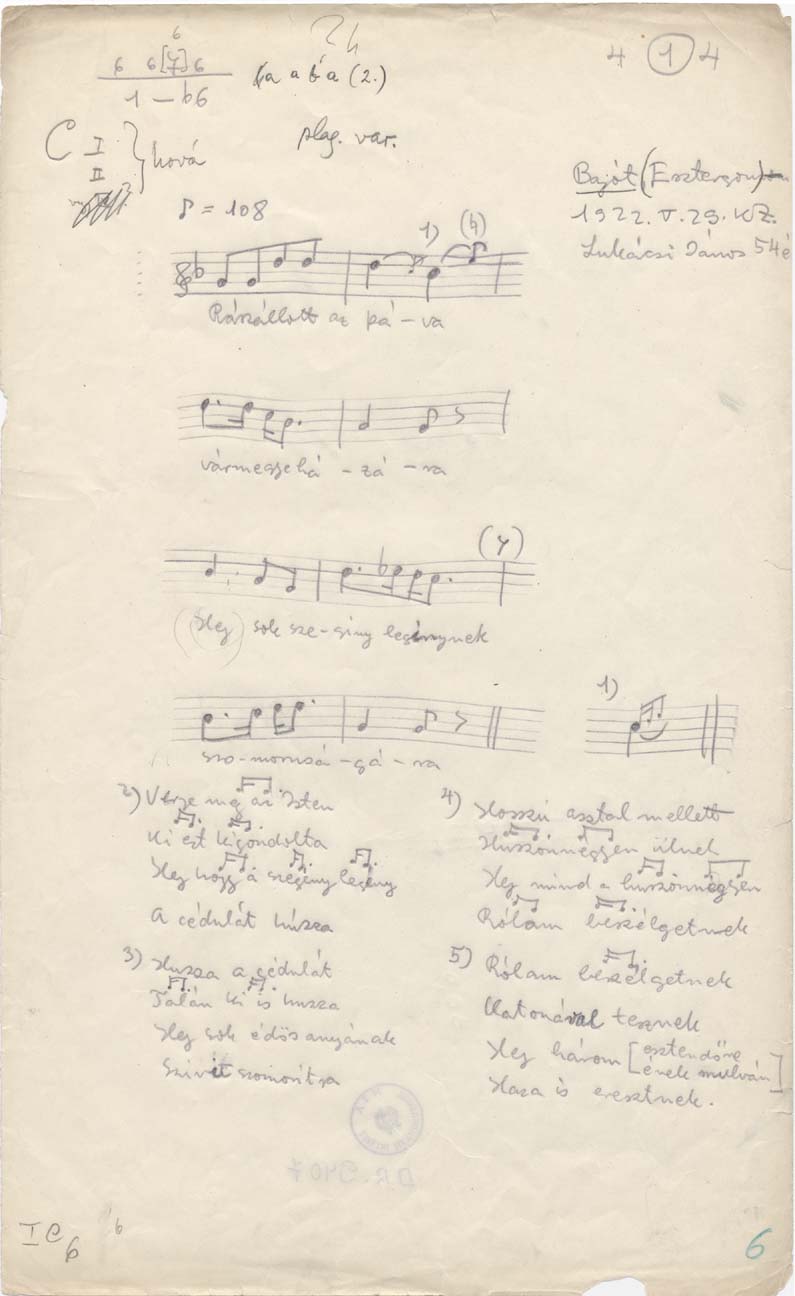 24
6
6 6[7]6
1 – b6
a a b a (2.)
4 1 4
C I
II
hová
plag. var.
Bajót (Esztergom)
1922. V. 29. KZ.
Lukácsi János 54 é
♪ = 108
1) (♮)
Rászállott az pá – va
vármegyehá – zá – ra
(7)
(Hej) sok sze – gény legénynek
1)
szo – morusá – gá – ra
2) Verje meg az Isten
Ki ezt kigondolta
Hej hogy a szegény legény
A cédulát húzza
3) Huzza a cédulát
Talán ki is huzza
Hej sok édösanyának
Szivit szomorítsa
4) Hosszú asztal mellett
Huszonnégyen ülnek
Hej mind a huszonnégyen
Rólam beszélgetnek
5) Rólam beszélgetnek
Katonával tesznek
Hej három [esztendőre
évek mulván]
Haza is eresztnek.
I C 6
6
6